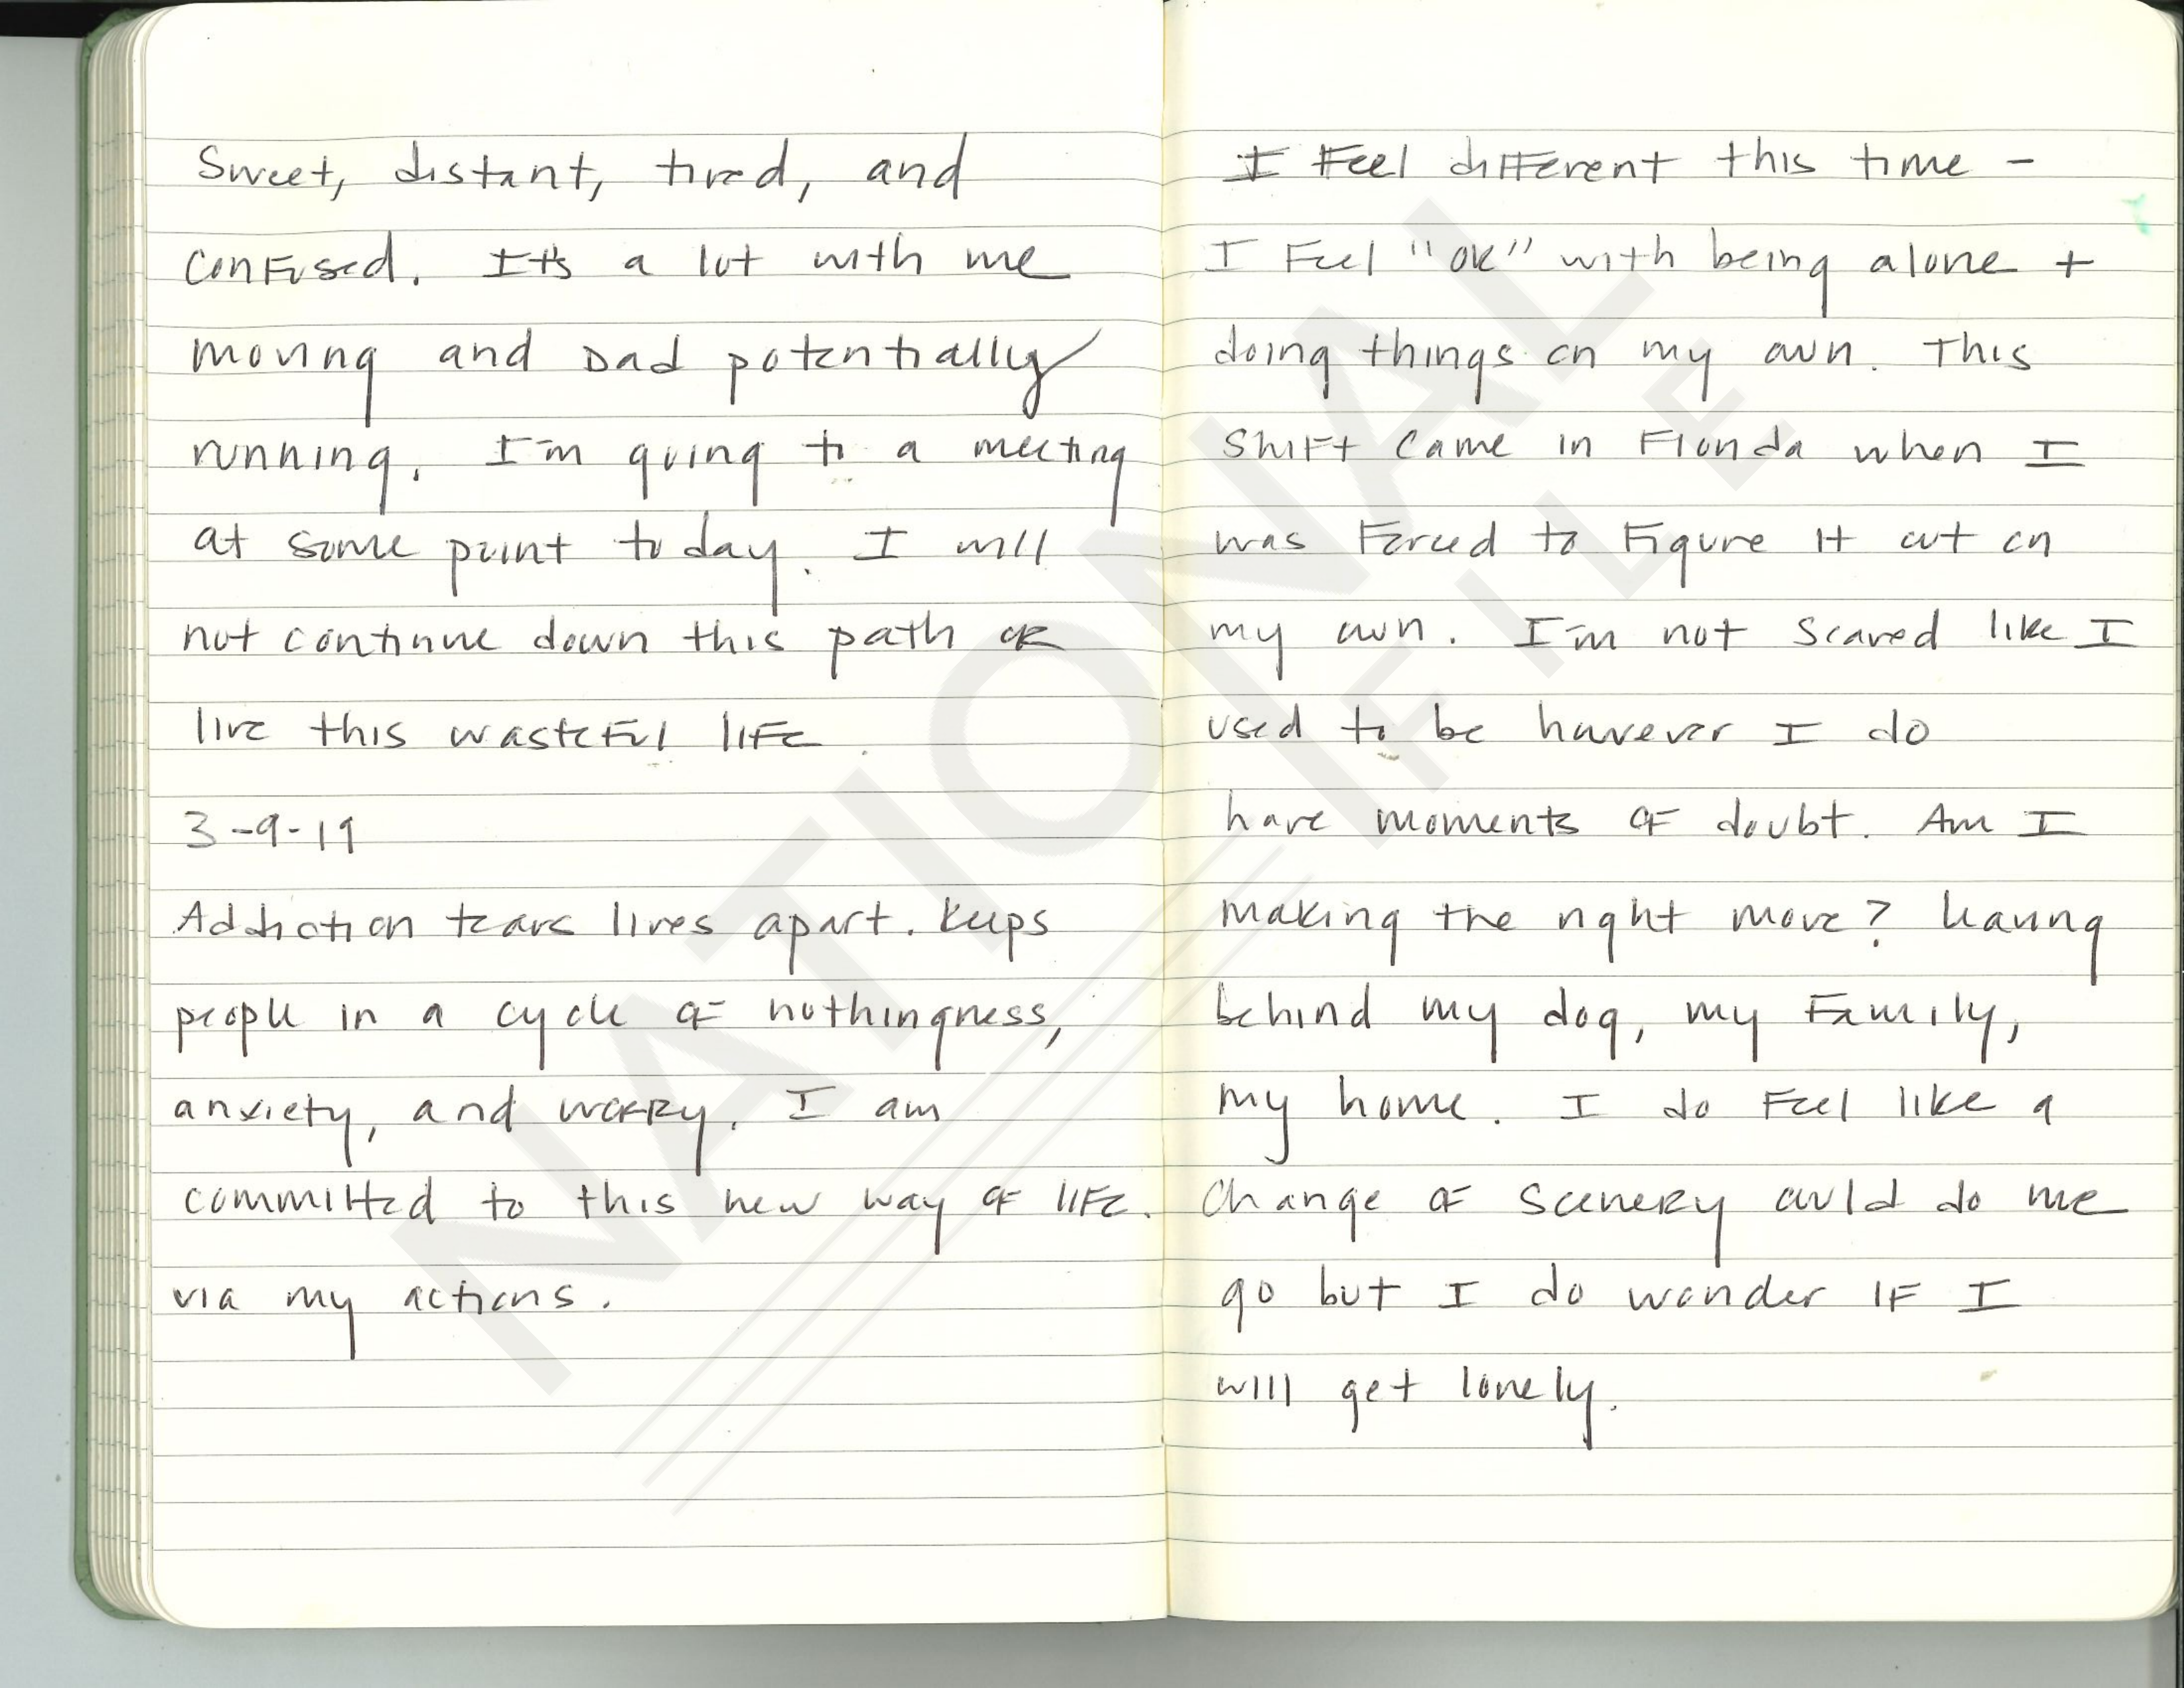 Sweet, distant, tired, and
confused. It's a lot with me
moving and Dad potentially
running. I'm going to a meeting
at some point today. I will
not continue down this path or
live this wasteful life.
3-9-19
Addiction tears lives apart. Keeps
people in a cycle of nothingness,
anxiety, and worry. I am
committed to this new way of life.
via my actions.
I feel different this time -
I feel "ok" with being alone +
doing things on my own. This
shift came in Florida when I
was forced to figure it out on
my own. I'm not scared like I
used to be however I do
have moments of doubt. Am I
making the right move? Leaving
behind my dog, my family,
my home. I do feel like a
change of scenery could do me
go but I do wonder if I
will get lonely.
NATIONAL
FILE